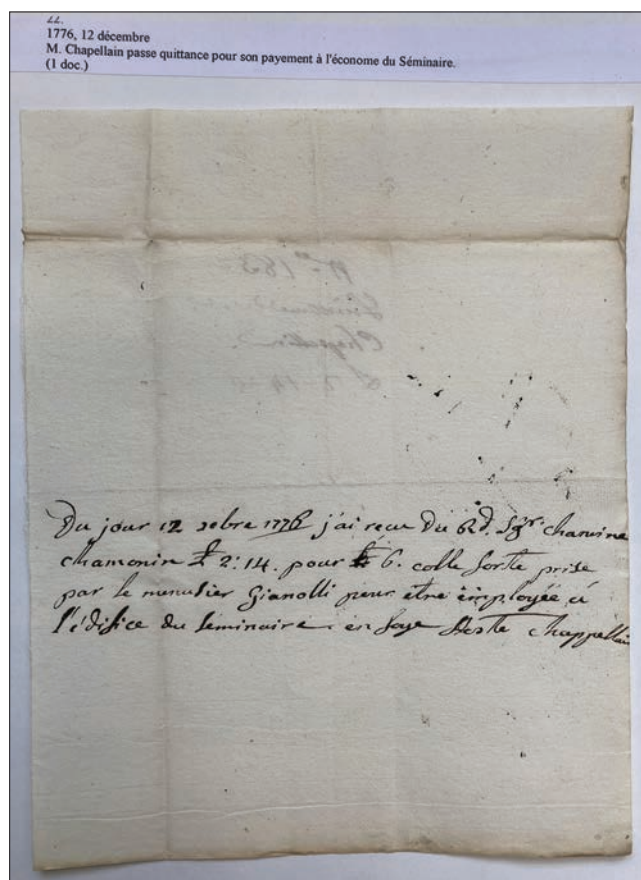 22.
1776, 12 décembre
M. Chapellain passe quittance pour son payement à l'économe du Séminaire.
(1 doc.)
Du jour 12 xbre 1776 j'ai recu du Rd. Sgr. chanoine
chamonin £ 2: 14. pour 6. colle forte prise
par le menusier Gianolli pour etre employée a
l'édifice du séminaire. en foye chappellain